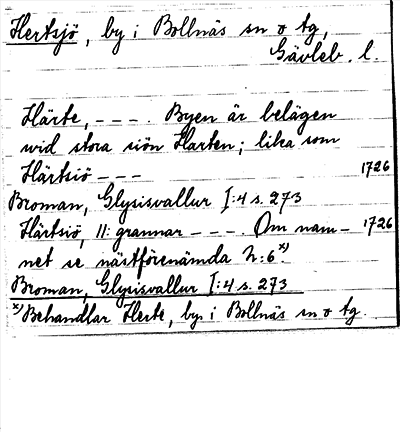 Hertsjö, by i Bollnäs sn o tg,
Gävleb. l.
Härte, - - - . Byen är belägen
wid stora siön Harten; lika som
Härtsiö - - - 1726
Broman, Glysisvallur I:4 s. 273
Härtsiö, 11: grannar - - - . Om nam- 1726
net se nästförenämda N:6 x).
Broman, Glysisvallur I:4 s. 273
x) Behandlar Herte, by i Bollnäs sn o tg.